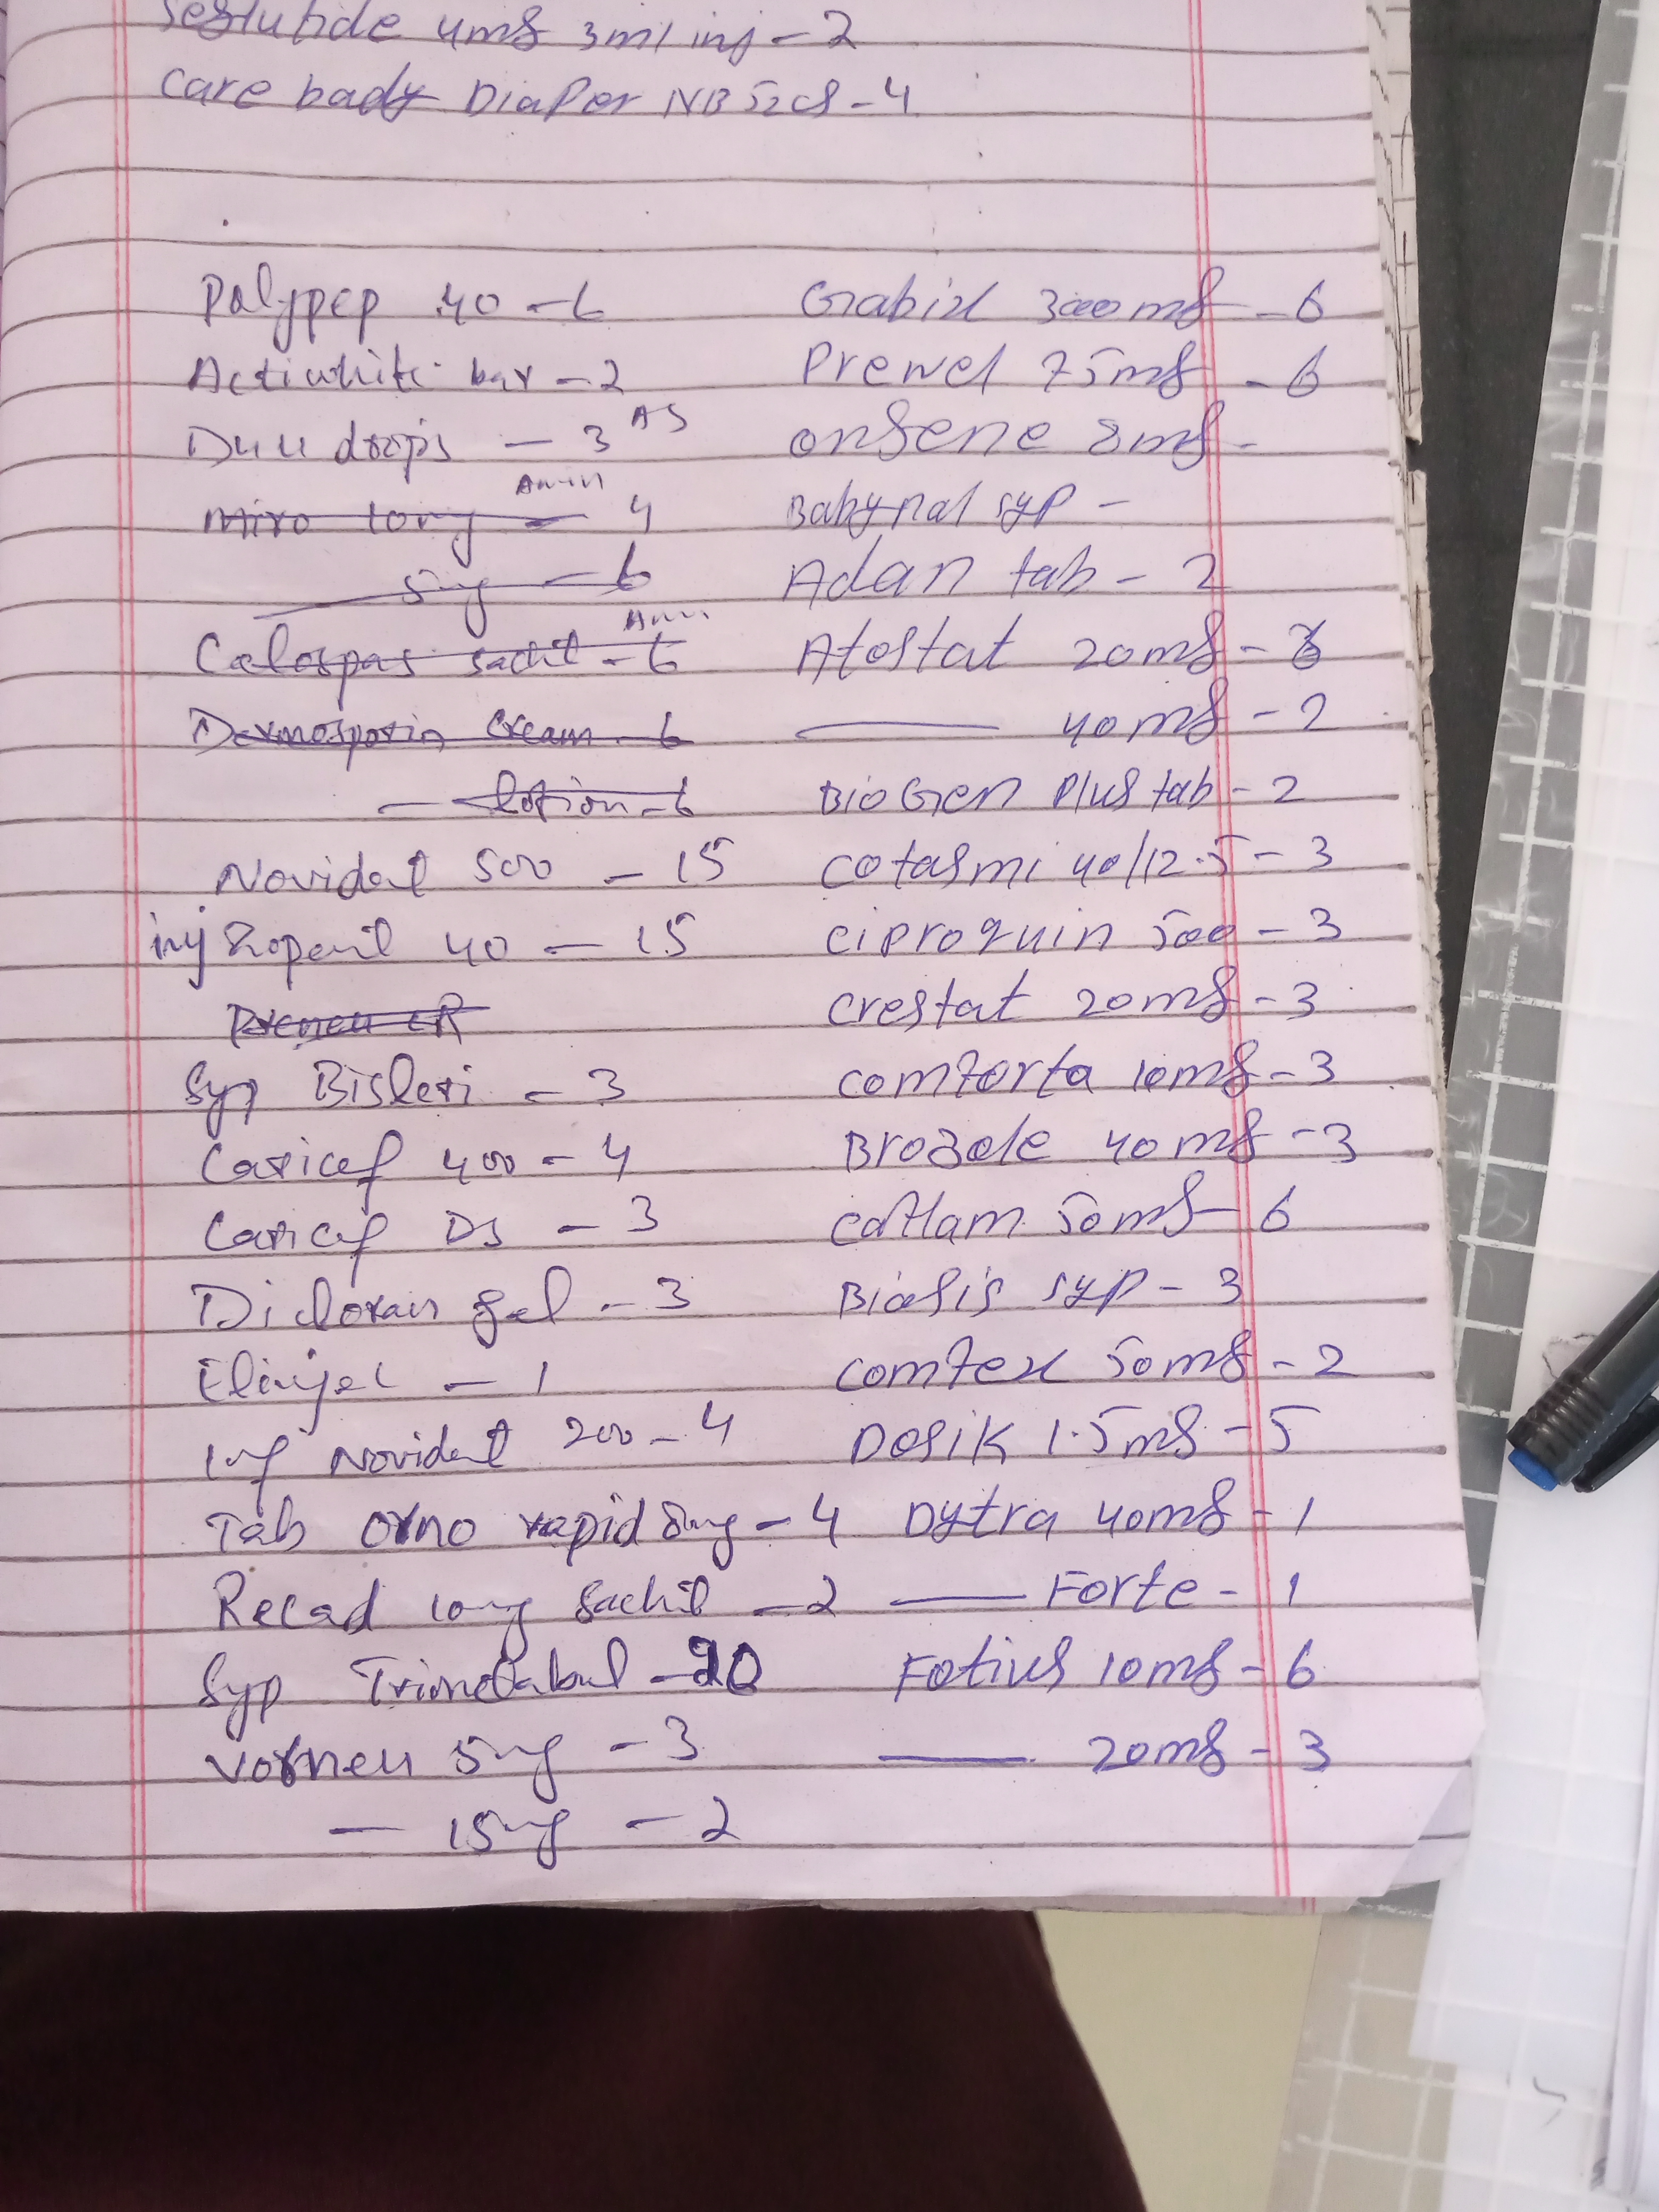 care baby Diaper NB 52cs - 4
Polypep 40 - 6
Actiwhite bar - 2
drops - 3 AS
Miro 10mg - 4
5mg - 6
Colospas sachit - 6
Dermosporin Cream - 6
— lotion - 6
Novidat 500 - 15
inj 40 - 15
Syp Bisleri - 3
Caricef 400 - 4
Caricef DS - 3
Dicloran gel - 3
- 1
Inf Novidat 200 - 4
Tab orno rapid 8mg - 4
Recad 10mg Sachit - 2
Syp Trimetabol - 20
5mg - 3
— 15mg - 2
Gabix 300mg - 6
Prewel 75mg - 6
onsene 8mg -
Babynal syp -
Adan tab - 2
Atostat 20mg -
— 40mg - 2
BioGen Plus tab - 2
cotasmi 40/12.5 - 3
ciproquin 500 - 3
crestat 20mg - 3
comforta 10mg - 3
Brozole 40mg - 3
caflam 50mg - 6
syp - 3
comfex 50mg - 2
Dosik 1.5mg - 5
Dytra 40mg - 1
— Forte - 1
Fotius 10mg - 6
— 20mg - 3